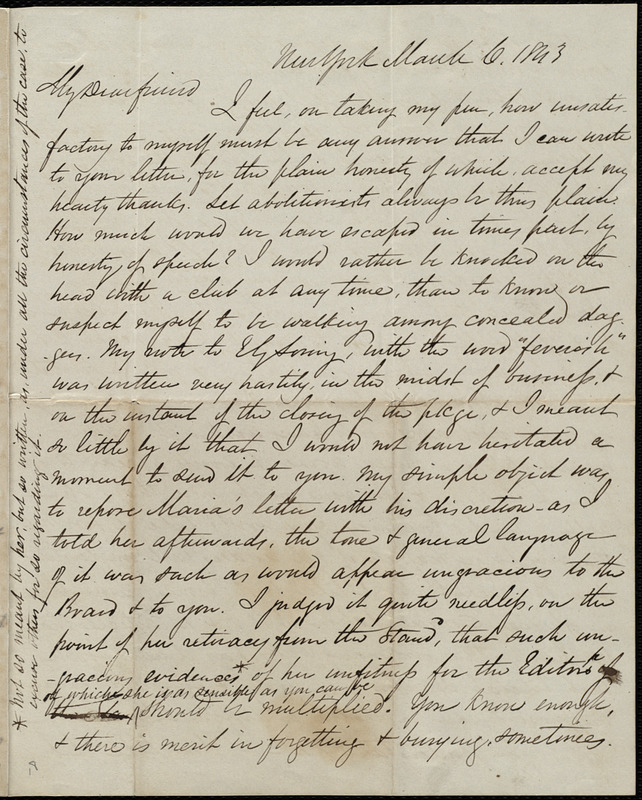 New York March 6. 1843
My Dear friend
I feel, on taking my pen, how unsatis-
factory to myself must be any answer that I can write
to your letter, for the plain honesty of which, accept my
hearty thanks. Let abolitionists always be thus plain.
How much would we have escaped in times past, by
honesty of speech? I would rather be knocked on the
head with a club at any time, than to know or
suspect myself to be walking among concealed dag-
-gers. My note to Ellis Loring, with the word "feverish"
was written very hastily, in the midst of business, &
on the instant of the closing of the pkge, & I meant
so little by it that I would not have hesitated a
moment to send it to you. My simple object was
to repose Maria's letter with his discretion - as I
told her afterwards, the tone & general language
of it was such as would appear ungracious to the
Board & to you. I judged it quite needless, on the
point of her retiracy from the Stand, that such un-
-gracious evidences* of her unfitness for the Editor
of which she is as sensible as you can be
should be multiplied. You know enough,
& there is merit in forgetting & burying, sometimes.
* Not so meant by her, but so written, as, under all the circumstances of the case, to
excuse others for so regarding it